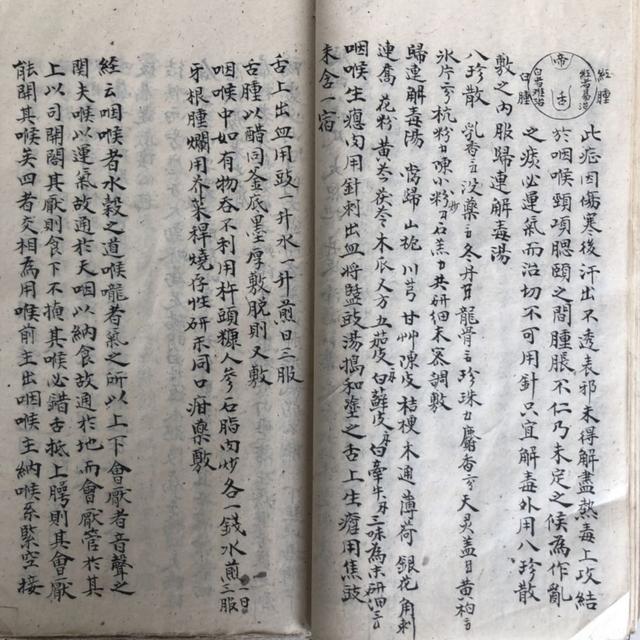 紅腫
紅者易治
帝
舌
白者难治
甲腫
此症因傷寒後汗出不透表邪未得解盡熱毒上攻結
於咽喉頸項腮頤之間腫脹不仁乃未定之候為作亂
之痰必運氣而治切不可用針只宜解毒外用八珍散
敷之內服歸連解毒湯
八珍散 乳香 没藥 冬丹 龍骨 珍珠 麝香 天灵盖 黄柏
氷片 杭粉 小粉 石羔 共研細末蜜調敷
歸連解毒湯 當歸 山梔 川芎 甘艸 陳皮 桔梗 木通 薄荷 銀花 角刺
連喬 花粉 黄芩 茯苓 木瓜 五茄皮 白蘚皮 白牽牛 三味為末研
咽喉生瘜肉用針刺出血將盬豉湯搗和塗之舌上生瘡用焦豉
末含一宿
舌上出血用豉一升水一升煎日三服
舌腫以醋同釜底墨厚敷脱則又敷
咽喉中如有物吞不利用杵頭糠人參石脂肉炒各一錢水煎一日三服
牙根腫爛用芥菜稈燒存性研示同口疳藥敷
經云咽喉者水穀之道喉嚨者氣之所以上下會厭者音聲之
関夫喉以運氣故通於天咽以納食故通於地而會厭管於其
上以司開闔其厭則食下不掩其喉必錯舌抵上腭則其會厭
能開其喉矣四者交相為用喉前主出咽喉主納喉系緊空接